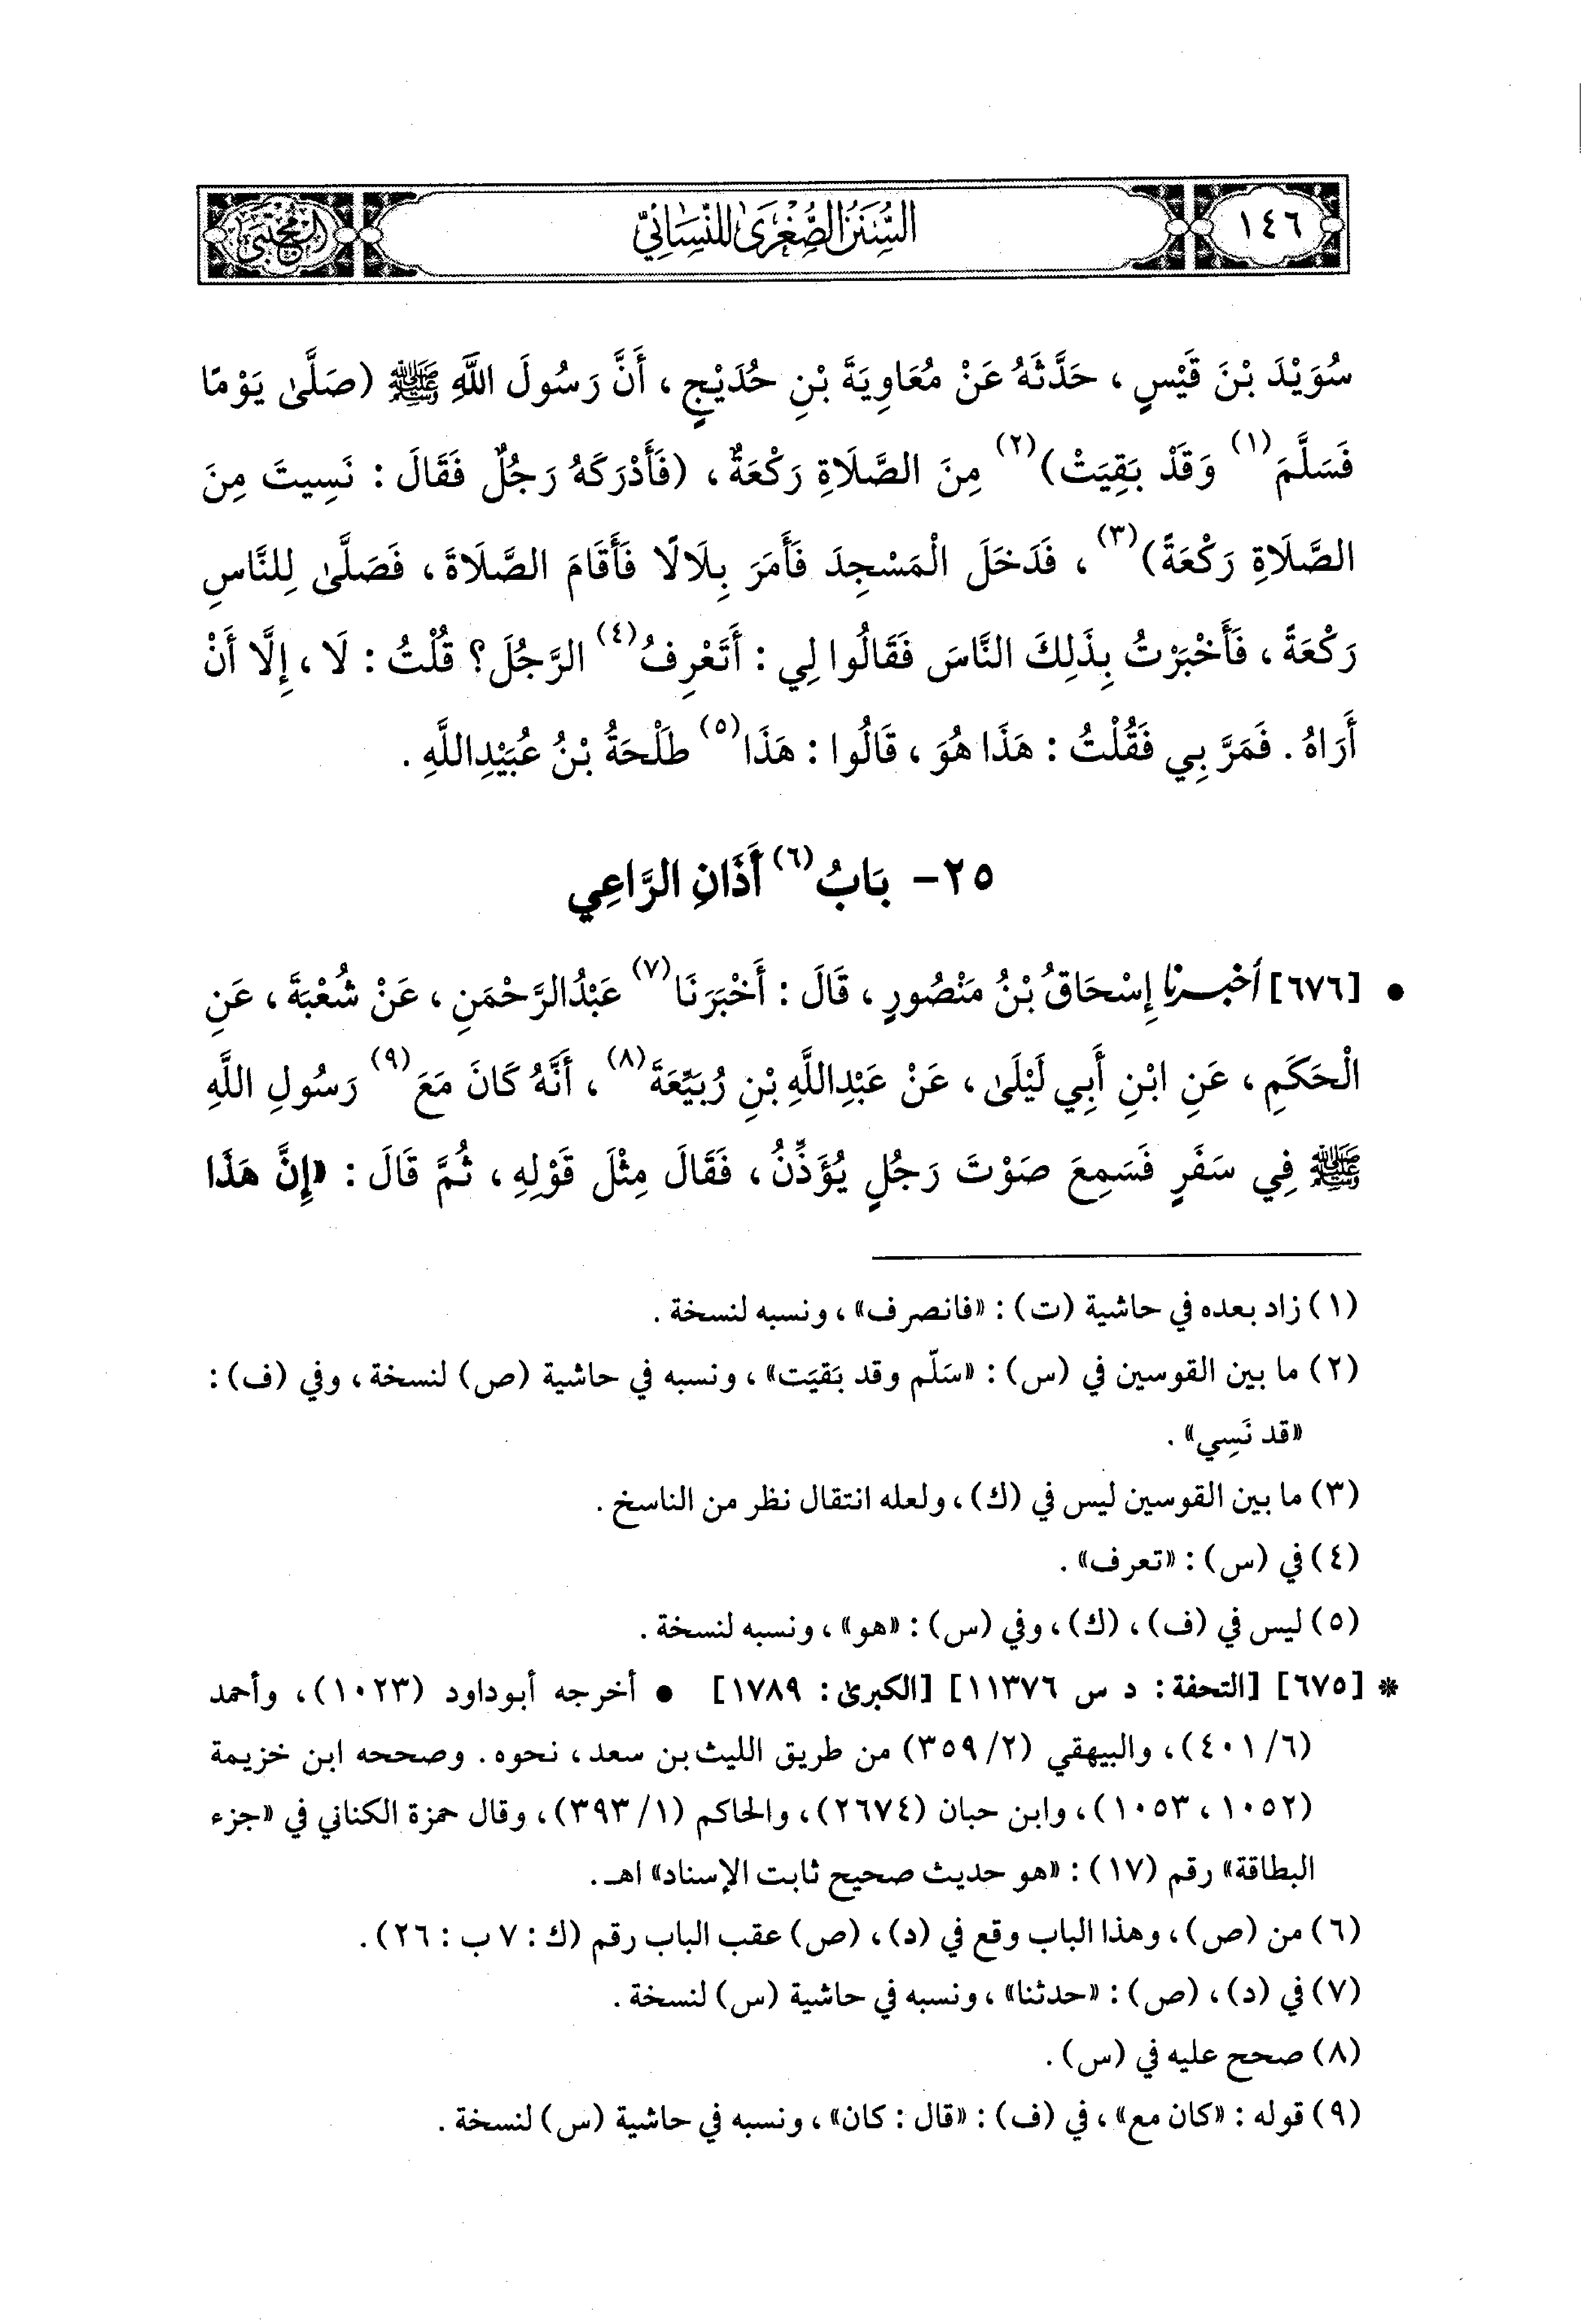 ١٤٦
السُّنَنُ الصُّغْرَىٰ لِلنَّسَائِيِّ
المجتبى
سُوَيْدَ بْنَ قَيْسٍ ، حَدَّثَهُ عَنْ مُعَاوِيَةَ بْنِ حُدَيْجٍ ، أَنَّ رَسُولَ اللَّهِ ﷺ (صَلَّىٰ يَوْمًا
فَسَلَّمَ(١) وَقَدْ بَقِيَتْ)(٢) مِنَ الصَّلَاةِ رَكْعَةٌ ، (فَأَدْرَكَهُ رَجُلٌ فَقَالَ : نَسِيتَ مِنَ
الصَّلَاةِ رَكْعَةً)(٣) ، فَدَخَلَ الْمَسْجِدَ فَأَمَرَ بِلَالًا فَأَقَامَ الصَّلَاةَ ، فَصَلَّىٰ لِلنَّاسِ
رَكْعَةً ، فَأَخْبَرْتُ بِذَلِكَ النَّاسَ فَقَالُوا لِي : أَتَعْرِفُ(٤) الرَّجُلَ؟ قُلْتُ : لَا ، إِلَّا أَنْ
أَرَاهُ . فَمَرَّ بِي فَقُلْتُ : هَذَا هُوَ ، قَالُوا : هَذَا(٥) طَلْحَةُ بْنُ عُبَيْدِاللَّهِ .
٢٥- بَابُ(٦) أَذَانِ الرَّاعِي
• [٦٧٦] أخبرنا إِسْحَاقُ بْنُ مَنْصُورٍ ، قَالَ : أَخْبَرَنَا(٧) عَبْدُالرَّحْمَنِ ، عَنْ شُعْبَةَ ، عَنِ
الْحَكَمِ ، عَنِ ابْنِ أَبِي لَيْلَىٰ ، عَنْ عَبْدِاللَّهِ بْنِ رُبَيِّعَةَ(٨) ، أَنَّهُ كَانَ مَعَ(٩) رَسُولِ اللَّهِ
ﷺ فِي سَفَرٍ فَسَمِعَ صَوْتَ رَجُلٍ يُؤَذِّنُ ، فَقَالَ مِثْلَ قَوْلِهِ ، ثُمَّ قَالَ : «إِنَّ هَذَا
(١) زاد بعده في حاشية (ت) : «فانصرف» ، ونسبه لنسخة .
(٢) ما بين القوسين في (س) : «سَلّم وقد بَقيَت» ، ونسبه في حاشية (ص) لنسخة ، وفي (ف) :
«قد نَسِي» .
(٣) ما بين القوسين ليس في (ك) ، ولعله انتقال نظر من الناسخ .
(٤) في (س) : «تعرف» .
(٥) ليس في (ف) ، (ك) ، وفي (س) : «هو» ، ونسبه لنسخة .
* [٦٧٥] [التحفة : د س ١١٣٧٦] [الكبرىٰ : ١٧٨٩] • أخرجه أبوداود (١٠٢٣) ، وأحمد
(٦/ ٤٠١) ، والبيهقي (٢/ ٣٥٩) من طريق الليث بن سعد ، نحوه . وصححه ابن خزيمة
(١٠٥٢ ، ١٠٥٣) ، وابن حبان (٢٦٧٤) ، والحاكم (١/ ٣٩٣) ، وقال حمزة الكناني في «جزء
البطاقة» رقم (١٧) : «هو حديث صحيح ثابت الإسناد» اهـ .
(٦) من (ص) ، وهذا الباب وقع في (د) ، (ص) عقب الباب رقم (ك : ٧ ب : ٢٦) .
(٧) في (د) ، (ص) : «حدثنا» ، ونسبه في حاشية (س) لنسخة .
(٨) صحح عليه في (س) .
(٩) قوله : «كان مع» ، في (ف) : «قال : كان» ، ونسبه في حاشية (س) لنسخة .